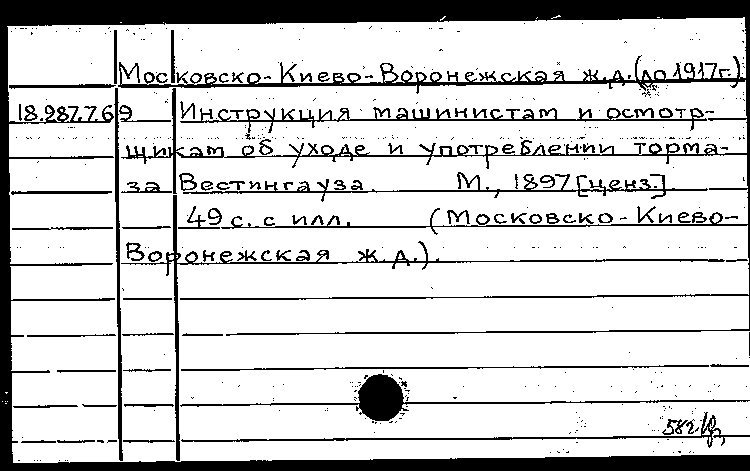 Московско-Киево-Воронежская ж.д.(до 1917г.)
18.287.7.69 Инструкция машинистам и осмотр-
щикам об уходе и употреблении торма-
за Вестингауза. М., 1897 [ценз.].
49 с. с илл. (Московско-Киево-
Воронежская ж.д.).